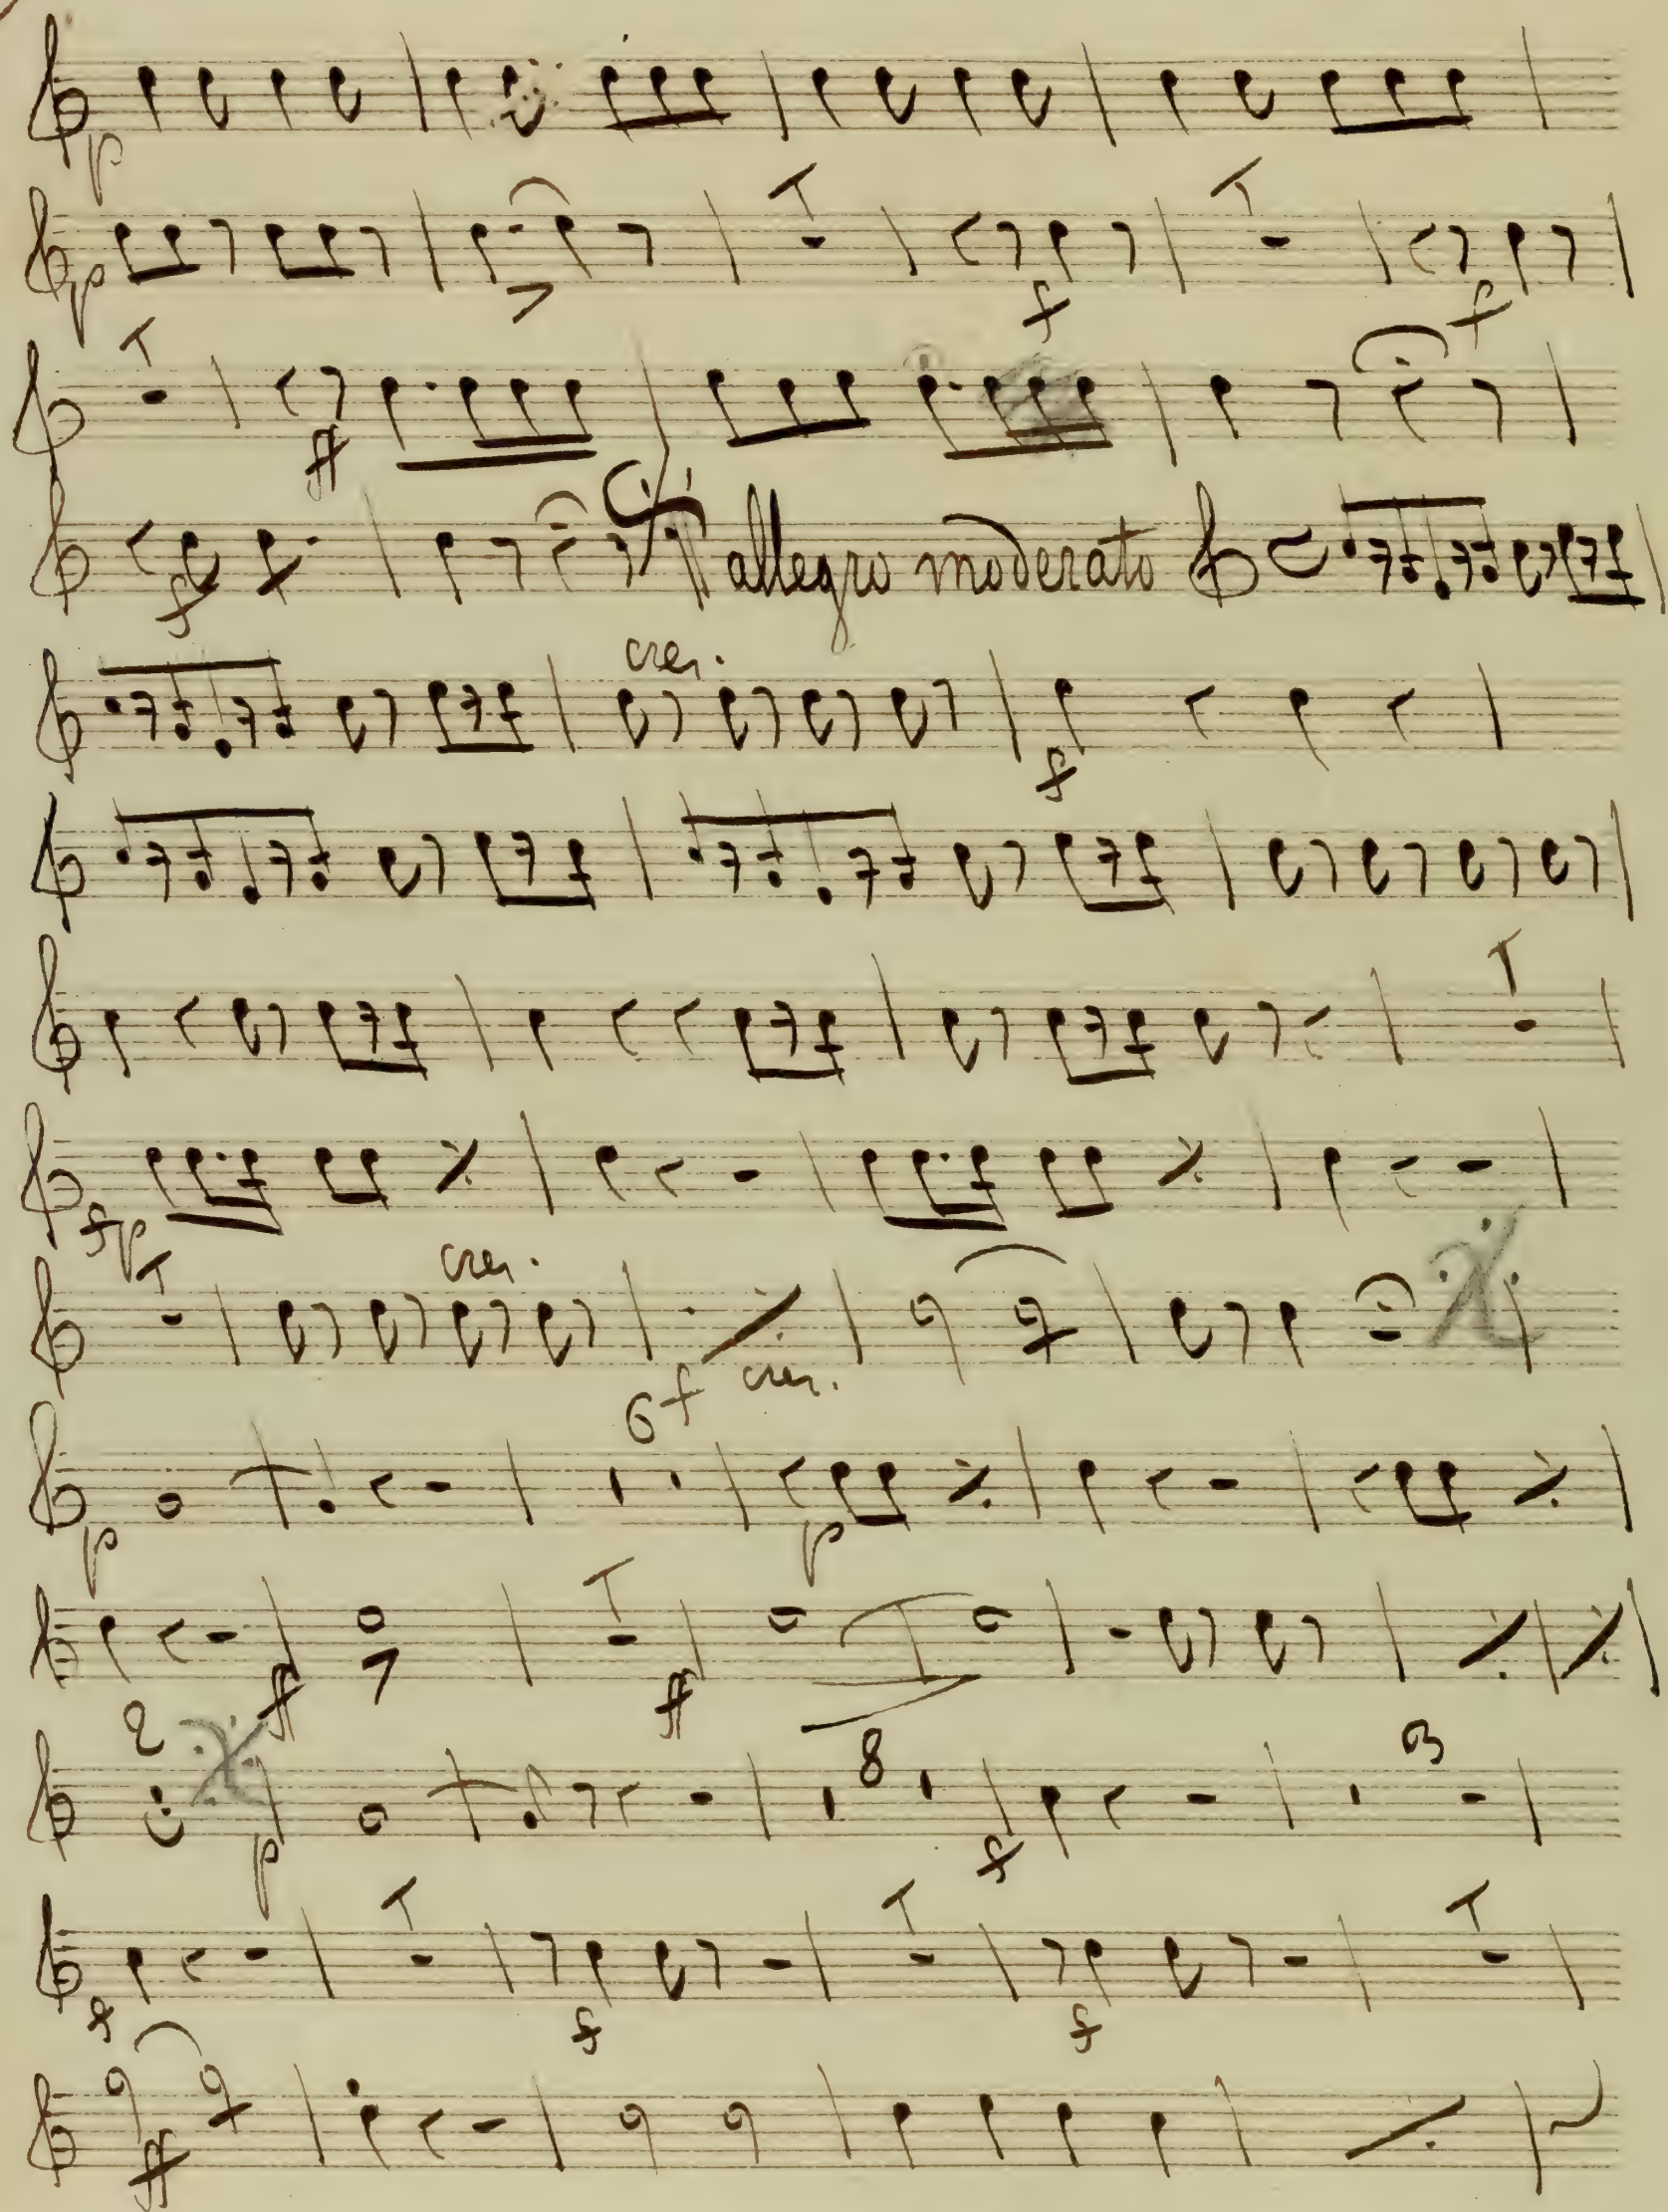 p
p f f
ff
f allegro moderato
cres.
f
fp
cres.
f cres.
6
p p
ff ff
2
p 8 f 3
f f f
ff